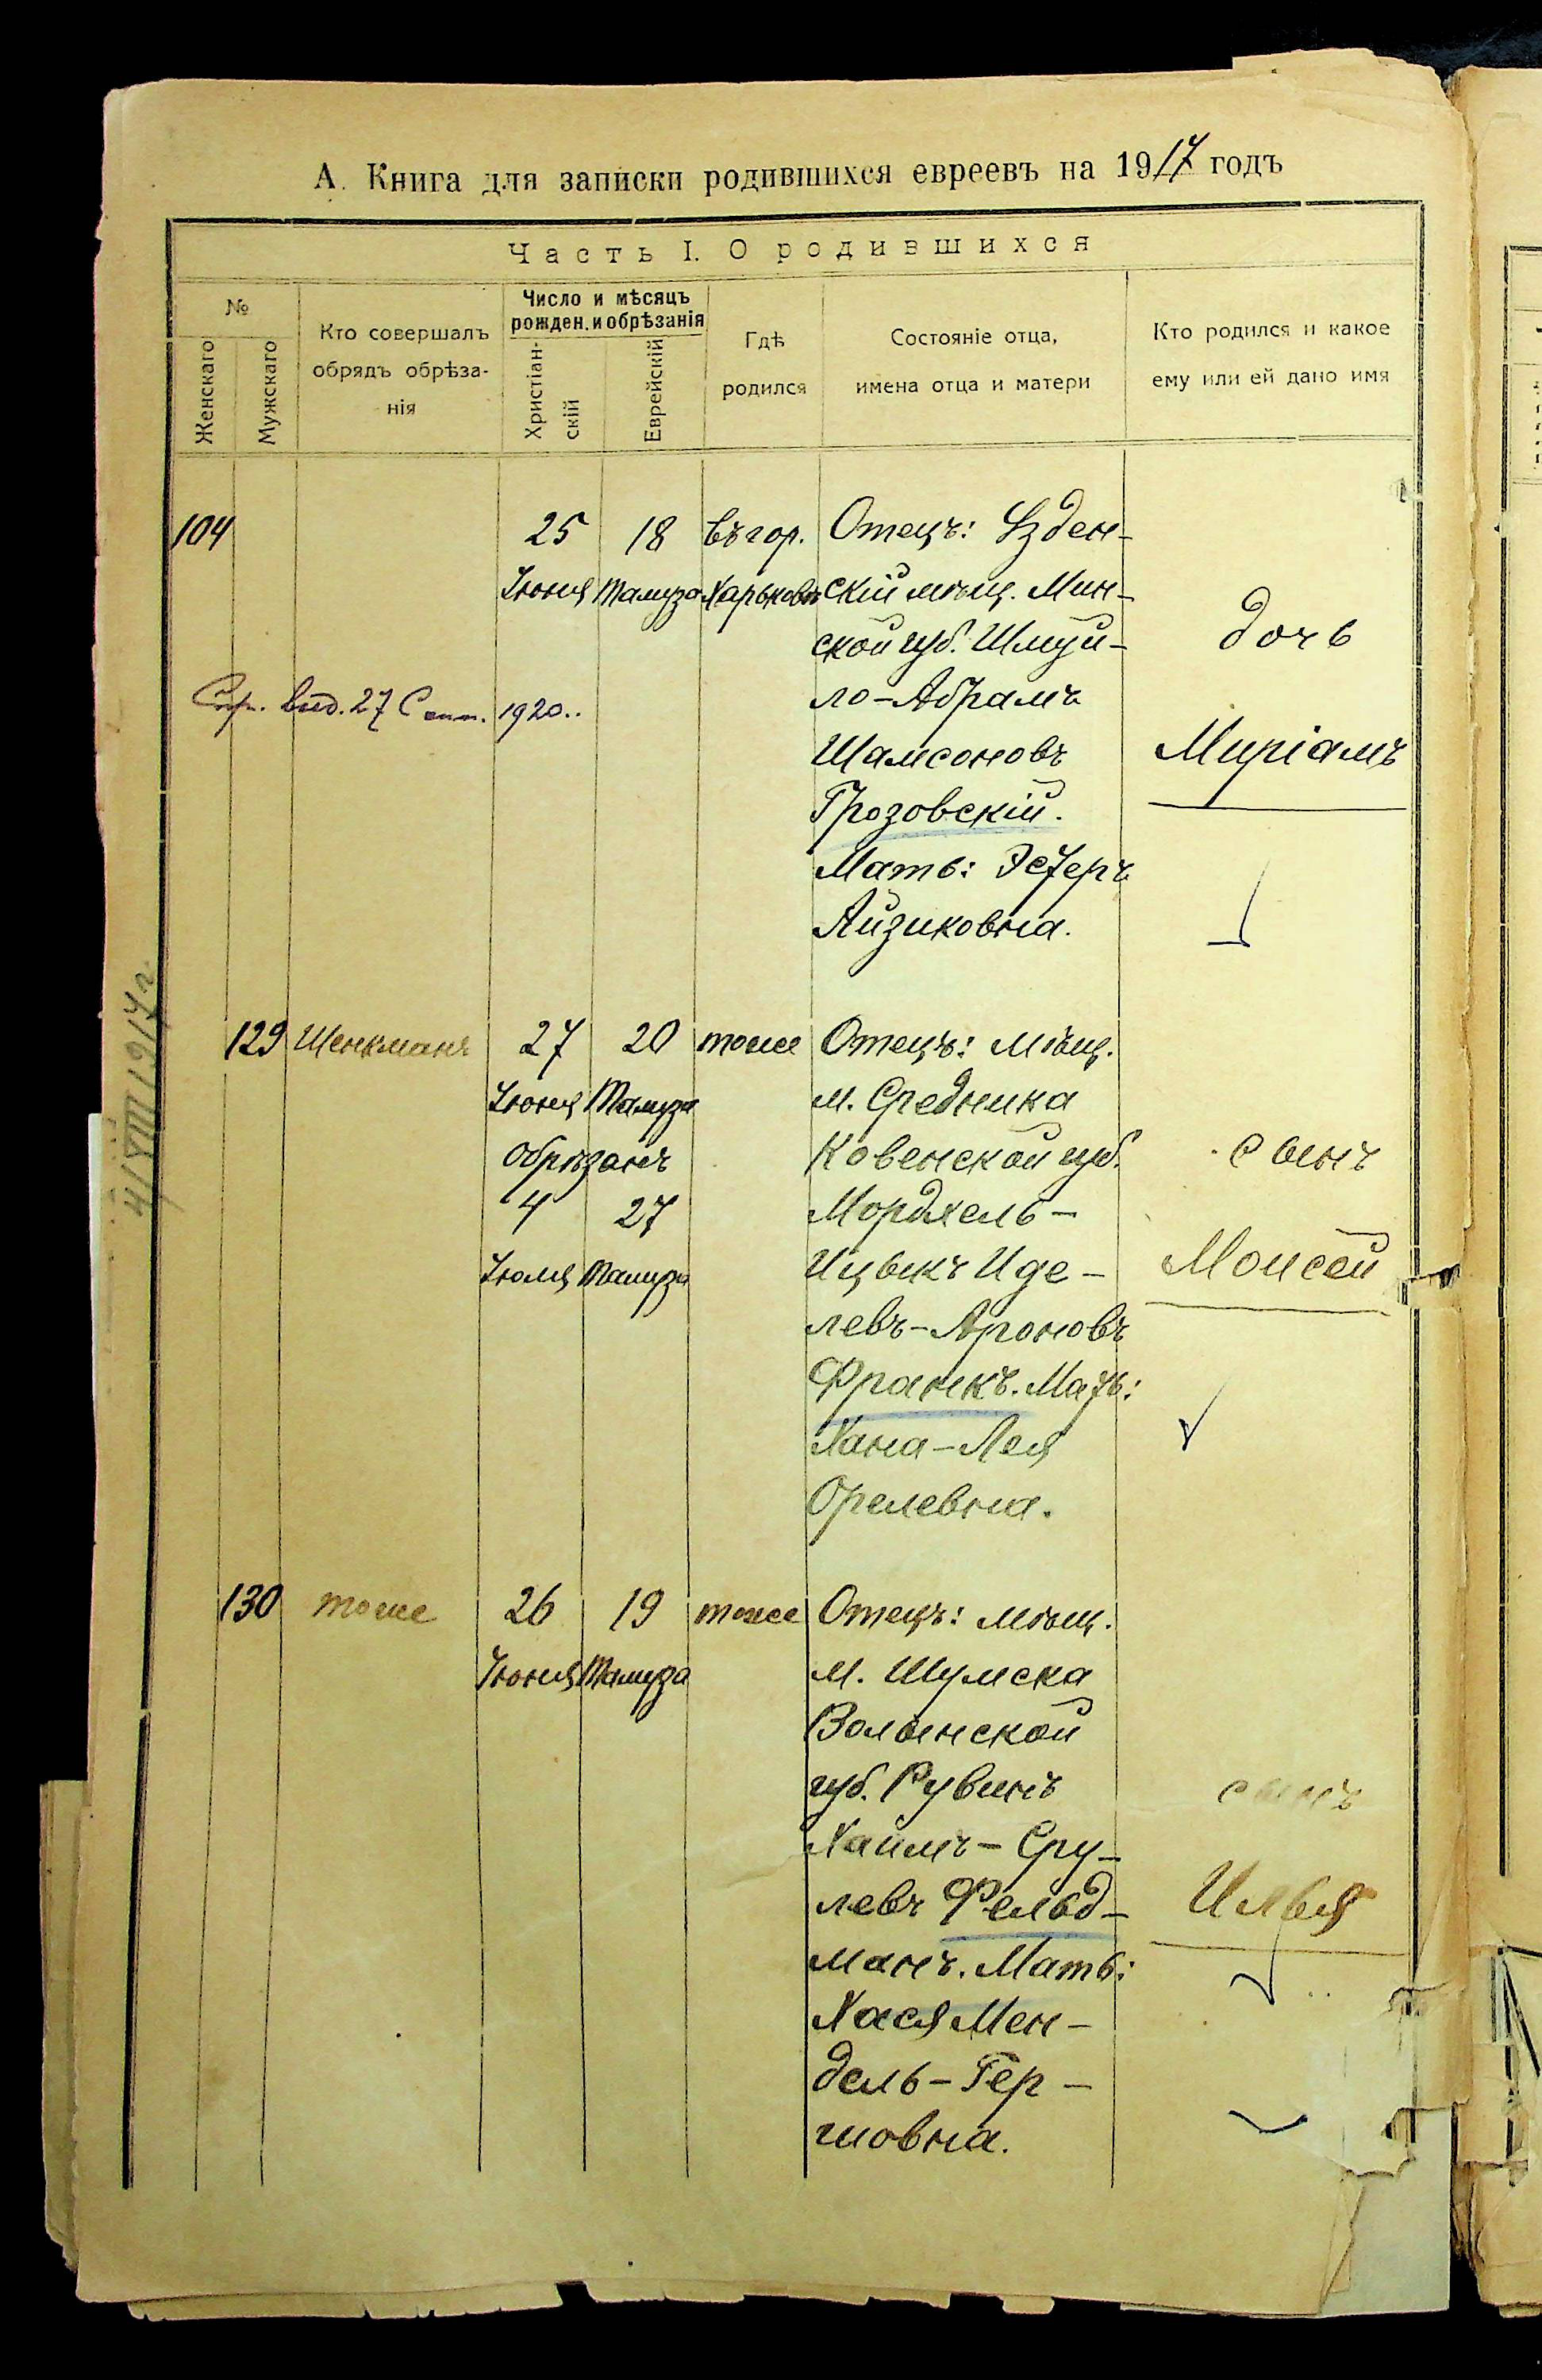 А. Книга для записки родившихся евреевъ на 1917 годъ
Часть I. О родившихся
№
Женскаго
Мужскаго
Кто совершалъ
обрядъ обрѣза-
нія
Число и мѣсяцъ
рожден. и обрѣзанія
Христіан-
скій
Еврейскій
Гдѣ
родился
Состояніе отца,
имена отца и матери
Кто родился и какое
ему или ей дано имя
104
25
Іюня
18
Тамуза
въ гор.
Харьковѣ
Отецъ: Узден-
скій мѣщ. Мин-
ской губ. Шмуй-
ло-Абрамъ
Шамсоновъ
Грозовскій.
Мать: Эстеръ
Айзиковна.
дочь
Миріамъ
Спр. выд. 27 Сент. 1920..
129
Шенкманъ
27
Іюня
20
Тамуза
Обрѣзанъ
4
Іюля
27
Тамуза
тоже
Отецъ: Мѣщ.
м. Средника
Ковенской губ.
Мордхель-
Ицыкъ Иде-
левъ-Ароновъ
Франкъ. Мать:
Хана-Лея
Орелевна.
сынъ
Моисей
130
тоже
26
Іюня
19
Тамуза
тоже
Отецъ: мѣщ.
м. Шумска
Волынской
губ. Рувинъ
Хаимъ-Сру-
левъ Фельд-
манъ. Мать:
Хася Мен-
дель-Гер-
шовна.
сынъ
Илья
4/VIII 1917 г.